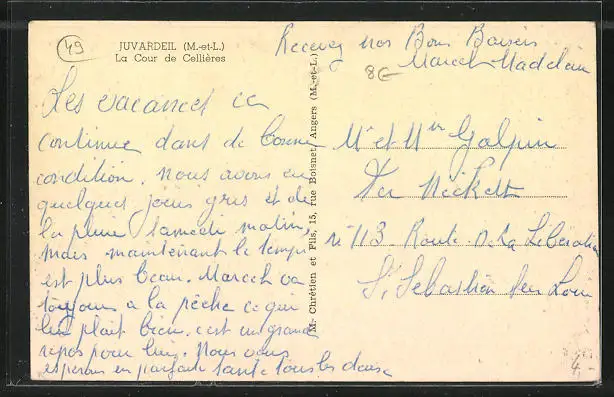 49
JUVARDEIL (M.-et-L.)
La Cour de Cellières
Recevez nos Bons Baisers
Marcel Madelein
8€
Les vacances ca
continue dans de bonne
condition. nous avons eu
quelques jours gris et de
la pluie samedi matin,
mais maintenant le temps
est plus beau. Marcel va
toujour a la pêche ce qui
lui plait bien. c'est un grand
repos pour lui. Nous vous
esperons en parfaite santé tous les deux
M. Chrétien et Fils, 15, rue Boisnet, Angers (M.-et-L.)
Mr et Mme Galpin
n° 113 Route de La Libération
St Sebastien sur Loire
4,-